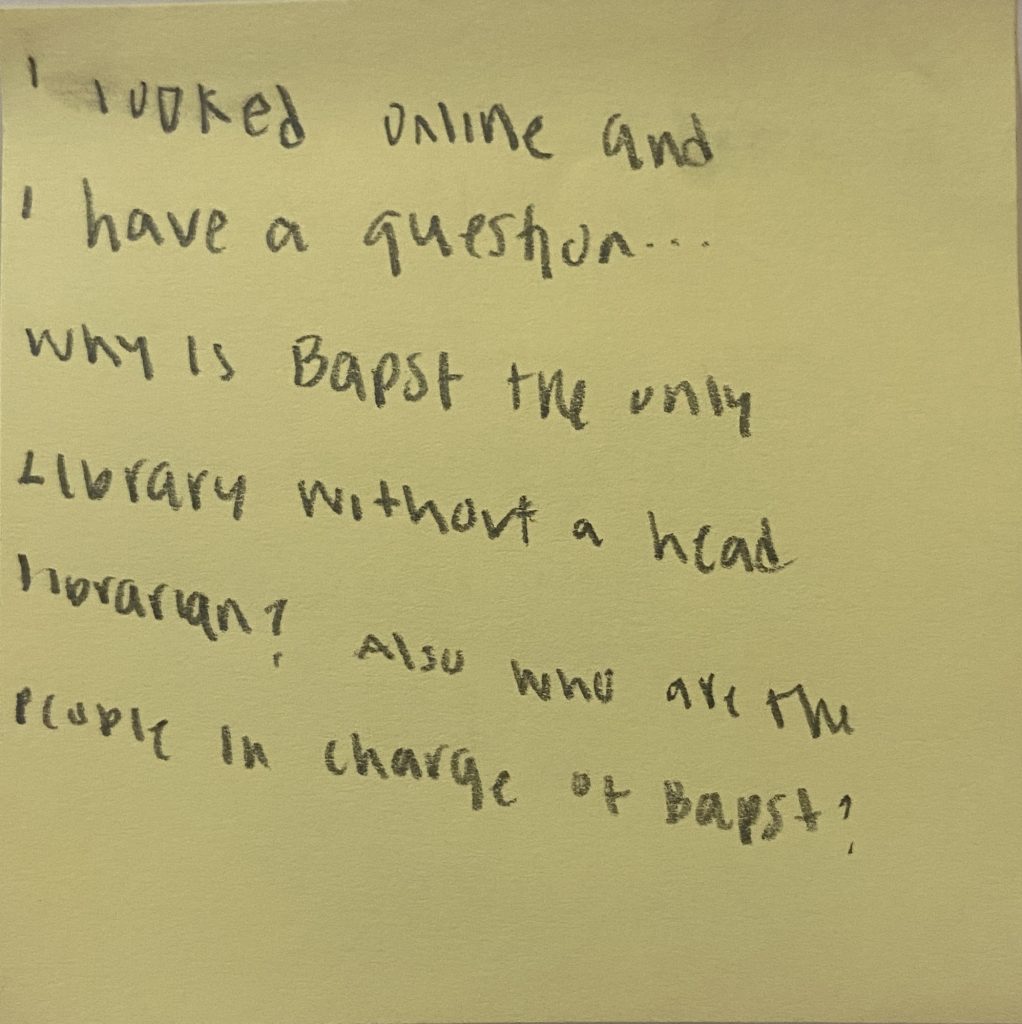 I looked online and
I have a question...
why is Bapst the only
Library without a head
librarian? Also who are the
people in charge of Bapst?